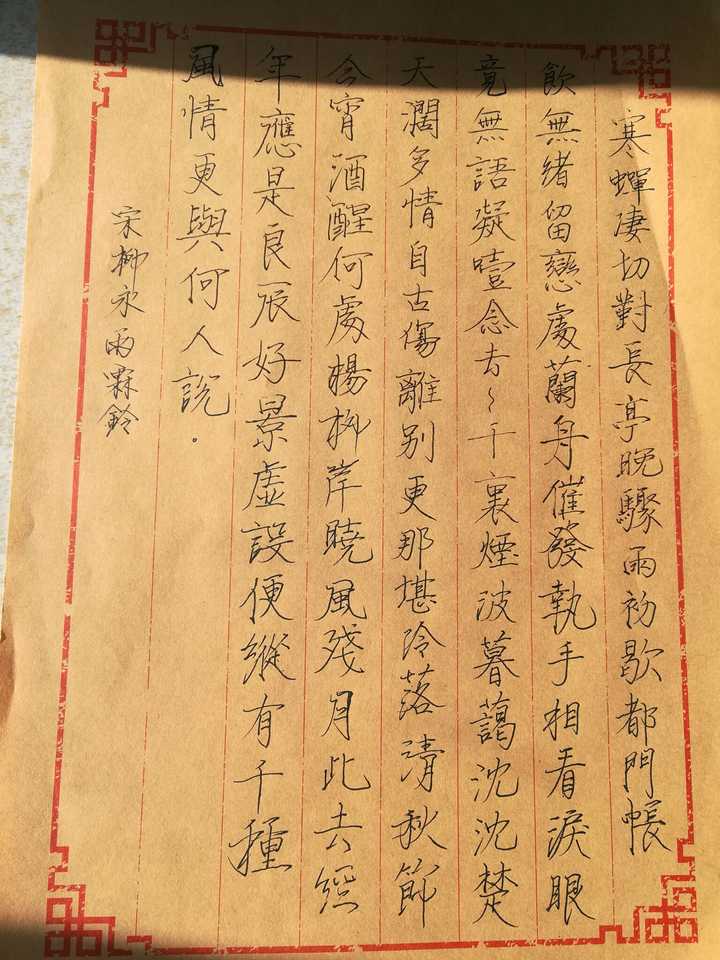 寒蟬凄切對長亭晚驟雨初歇都門帳
飲無緒留戀處蘭舟催發執手相看淚眼
竟無語凝噎念去〻千裏煙波暮藹沈沈楚
天濶多情自古傷離别更那堪冷落清秋節
今宵酒醒何處楊柳岸曉風殘月此去經
年應是良辰好景虛設便縱有千種
風情更與何人說.
宋柳永雨霖鈴